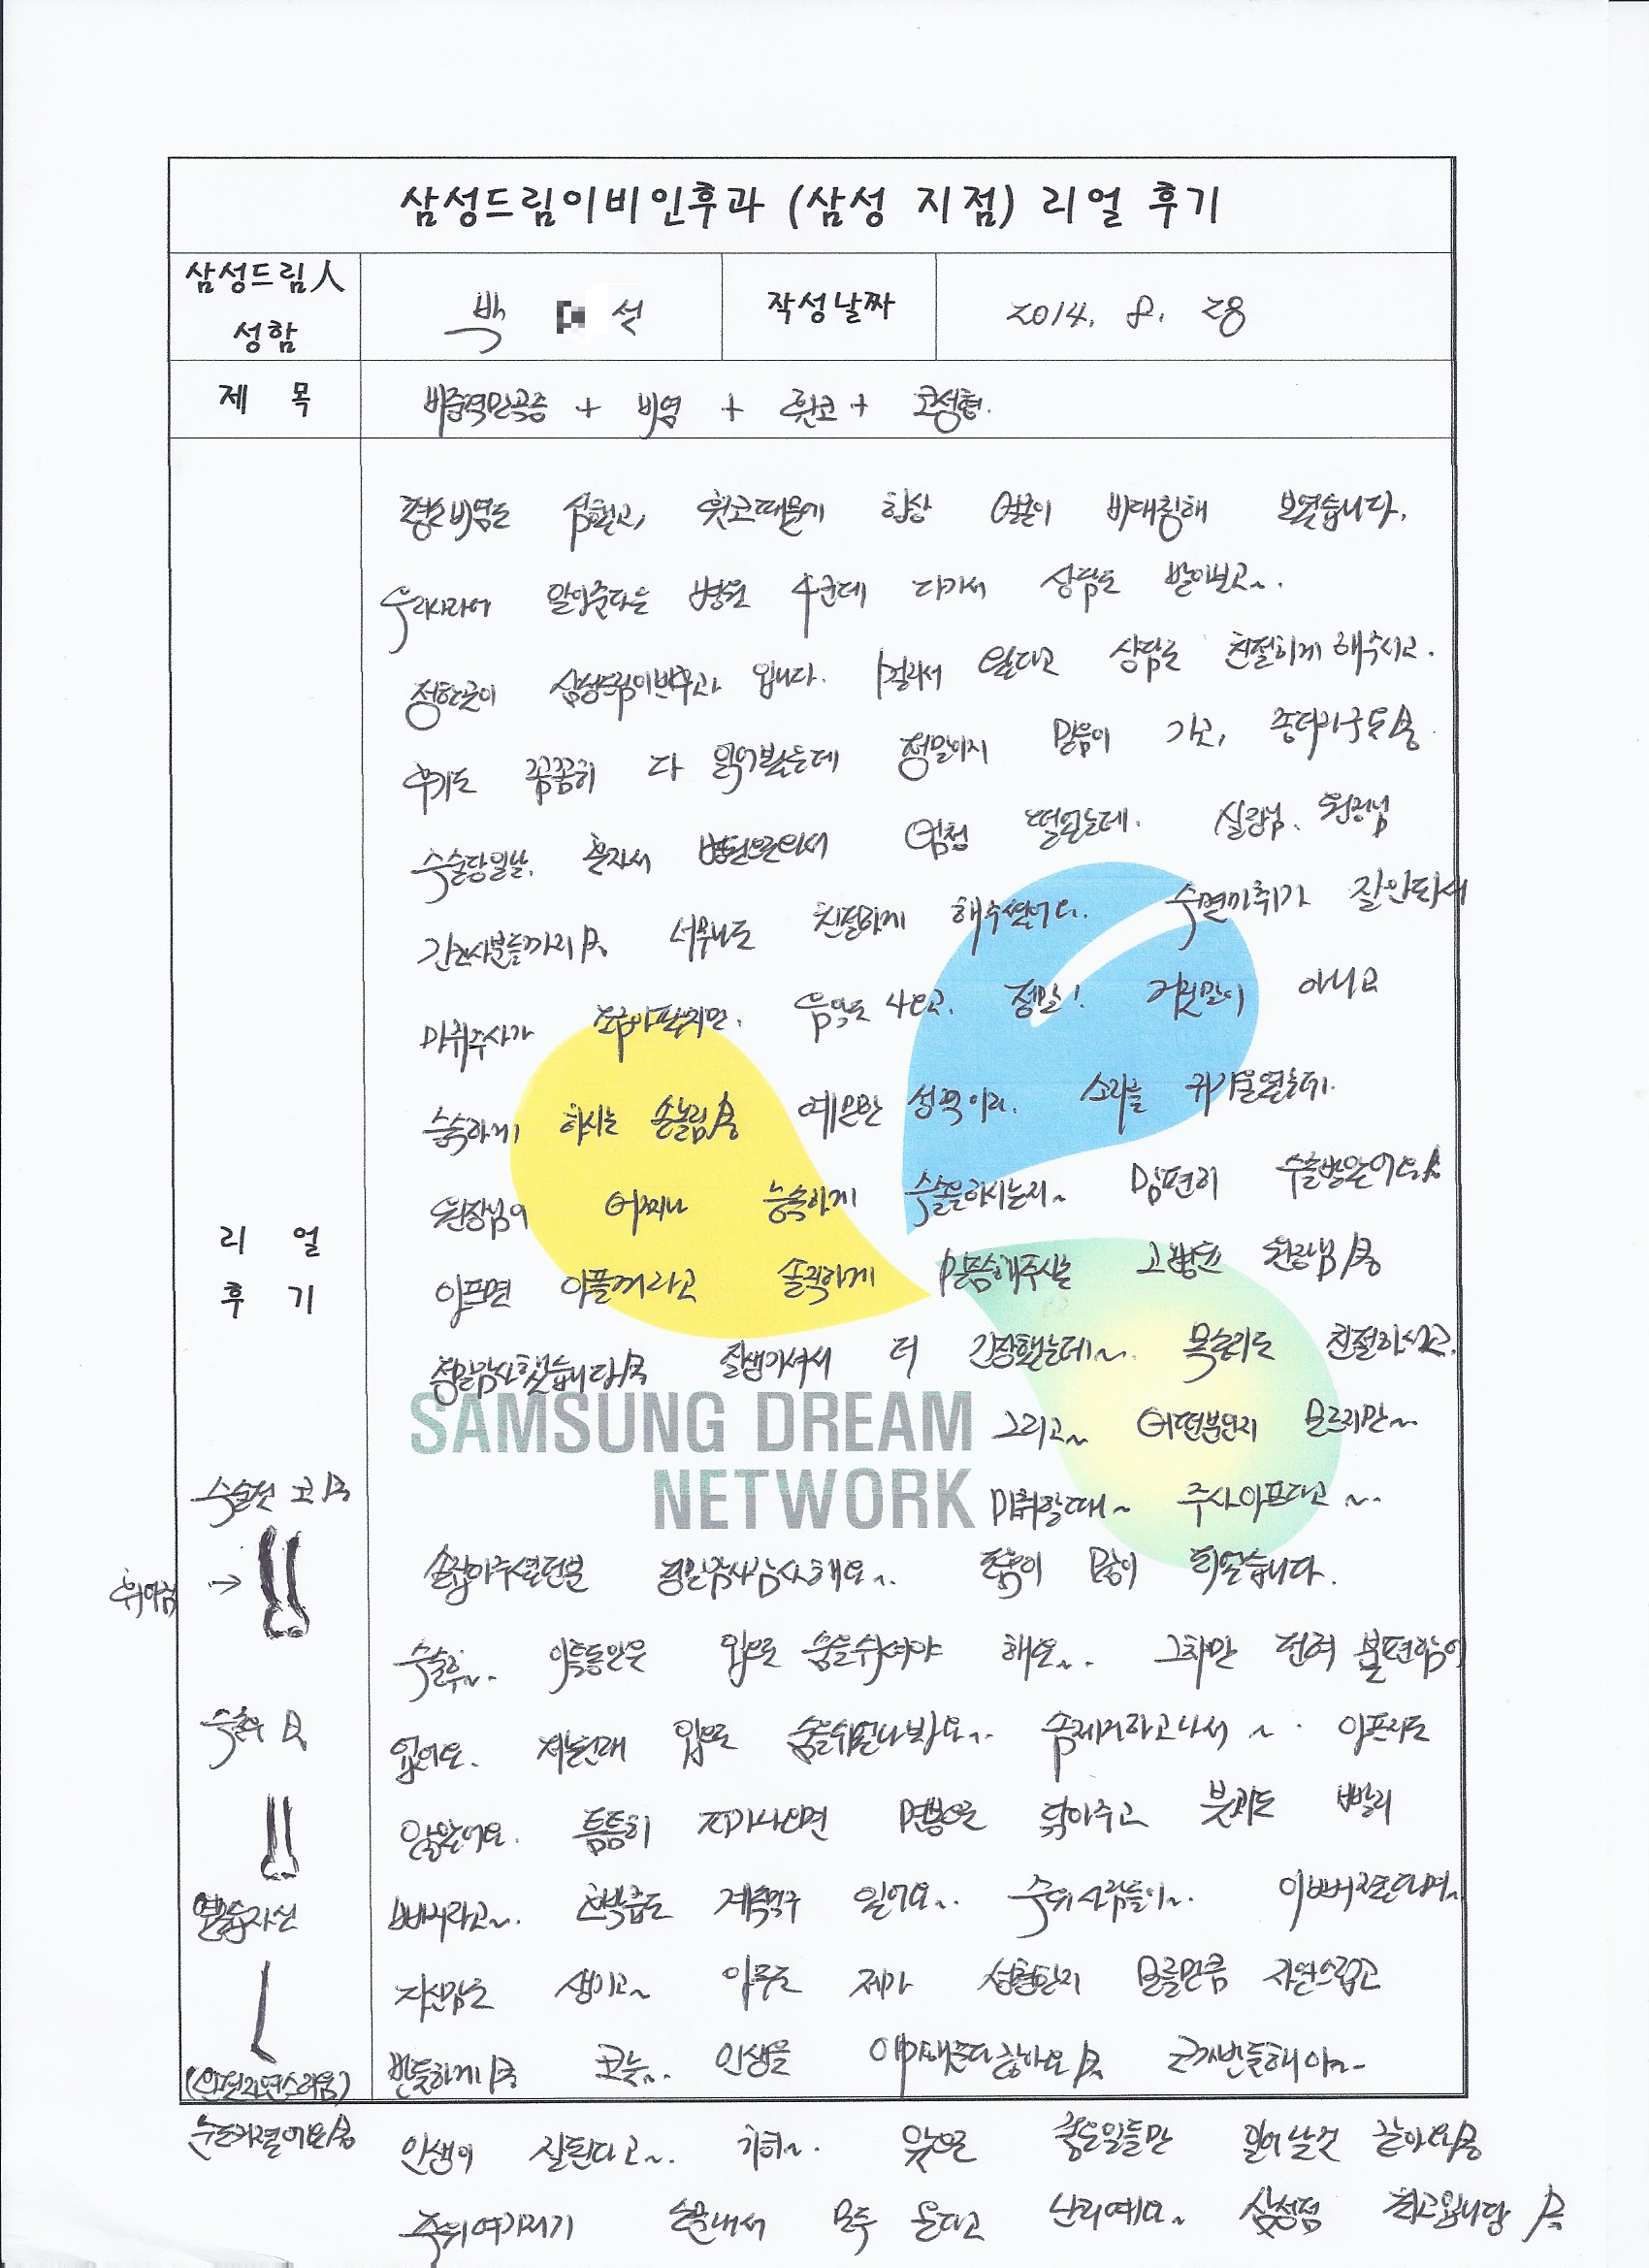 삼성드림이비인후과 (삼성 지점) 리얼 후기
삼성드림人 성함
백 설
작성날짜
2014. 8. 28
제 목
비중격만곡증 + 비염 + 휜코 + 코성형.
평소 비염도 심했고, 휜코때문에 항상 얼굴이 비대칭해 보였습니다.
우리나라에 알아준다는 병원 4군데 다가서 상담도 받아보고~.
정한곳이 삼성드림이비인후과 입니다. 멀다고 상담도 친절히게 해주시고.
후기도 꼼꼼히 다 읽어봤는데 정말이지 믿음이 가고,
수술당일날. 혼자서 병원으로와서 엄청 떨렸는데. 실장님. 원장님
간호사분들까지 너무나도 친절하게 해주셨어요. 수면마취가 잘안되서
마취주사가 조금아팠지만. 음악도 나오고. 정말! 거짓말이 아니고
능숙하게 하시는 손놀림 예민한 성격이라. 소리를 귀기울였는데.
원장님이 어찌나 능숙하게 수술을하시는지~ 맘편히 수술받았어요
아프면 아플꺼라고 솔직하게 말씀해주시는 고병준 원장님
정말감사했습니다 잘생기셔서 더 긴장했는데~. 목소리도 친절하시고.
SAMSUNG DREAM
그리고~ 어떤분인지 모르지만~
NETWORK
마취할때~ 주사아프다고~..
손잡아주셨던분 정말감사감사해요~. 도움이 많이 되었습니다.
수술후~. 이틀동안은 입으로 숨을쉬어야 해요~. 그치만 전혀 불편함이
없어요. 저는원래 입으로 숨을쉬었나봐요~. 솜제거하고나서~. 아프지도
않았어요. 틈틈히 피가나오면 면봉으로 닦아주고 붓기도 빨리
빠지라고~. 호박즙도 계속먹구 있어요~. 주위사람들이~. 이뻐졌다며~
자신감도 생기고~ 아무도 제가 성형한지 모를만큼 자연스럽고
반듯하게 코는~. 인생을 코가반듯해야~
인생이 잘된다고~. 히히~. 앞으로 좋은일들만 일어날것 같아요
주위여기저기 소문내서 모두 온다고 난리예요~ 삼성점 최고입니당
리 얼
후 기
수술전 코
휘어짐 →
수술후
옆모습
(완전자연스러움)